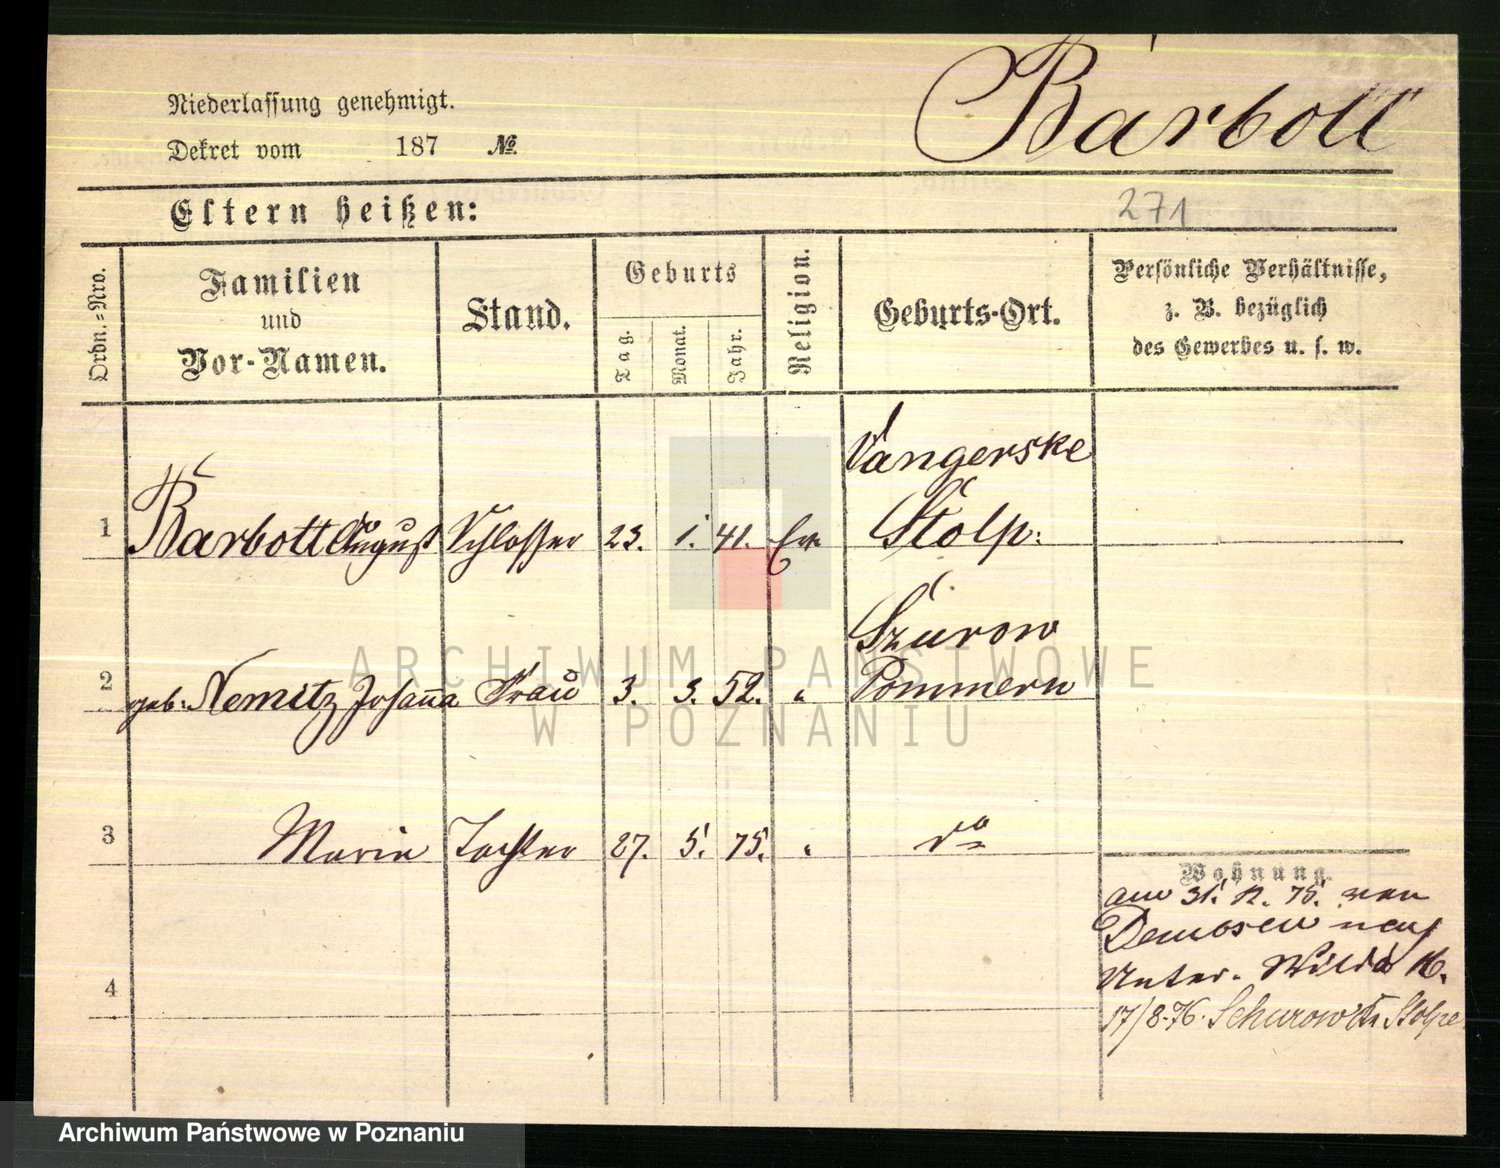 Niederlassung genehmigt.
Dekret vom 187 №
Barbott
Eltern heißen:
271
Ordn.-Nro.
Familien
und
Vor-Namen.
Stand.
Geburts
Tag.
Monat.
Jahr.
Religion.
Geburts-Ort.
Persönliche Verhältnisse,
z. B. bezüglich
des Gewerbes u. s. w.
Vangerske
1 Barbott August Schlosser 23. 1. 41. Ev. Stolp:
Szurow
2 geb: Nemitz Johanna Frau 3. 3. 52. " Pommern
3 Marie Tochter 27. 5. 75. " do
Wohnung.
am 31. 12. 75. von
Demosen nach
4
Unter-Wilda 16.
17/8.76. Schurow Kr. Stolpe
ARCHIWUM PAŃSTWOWE
W POZNANIU
Archiwum Państwowe w Poznaniu